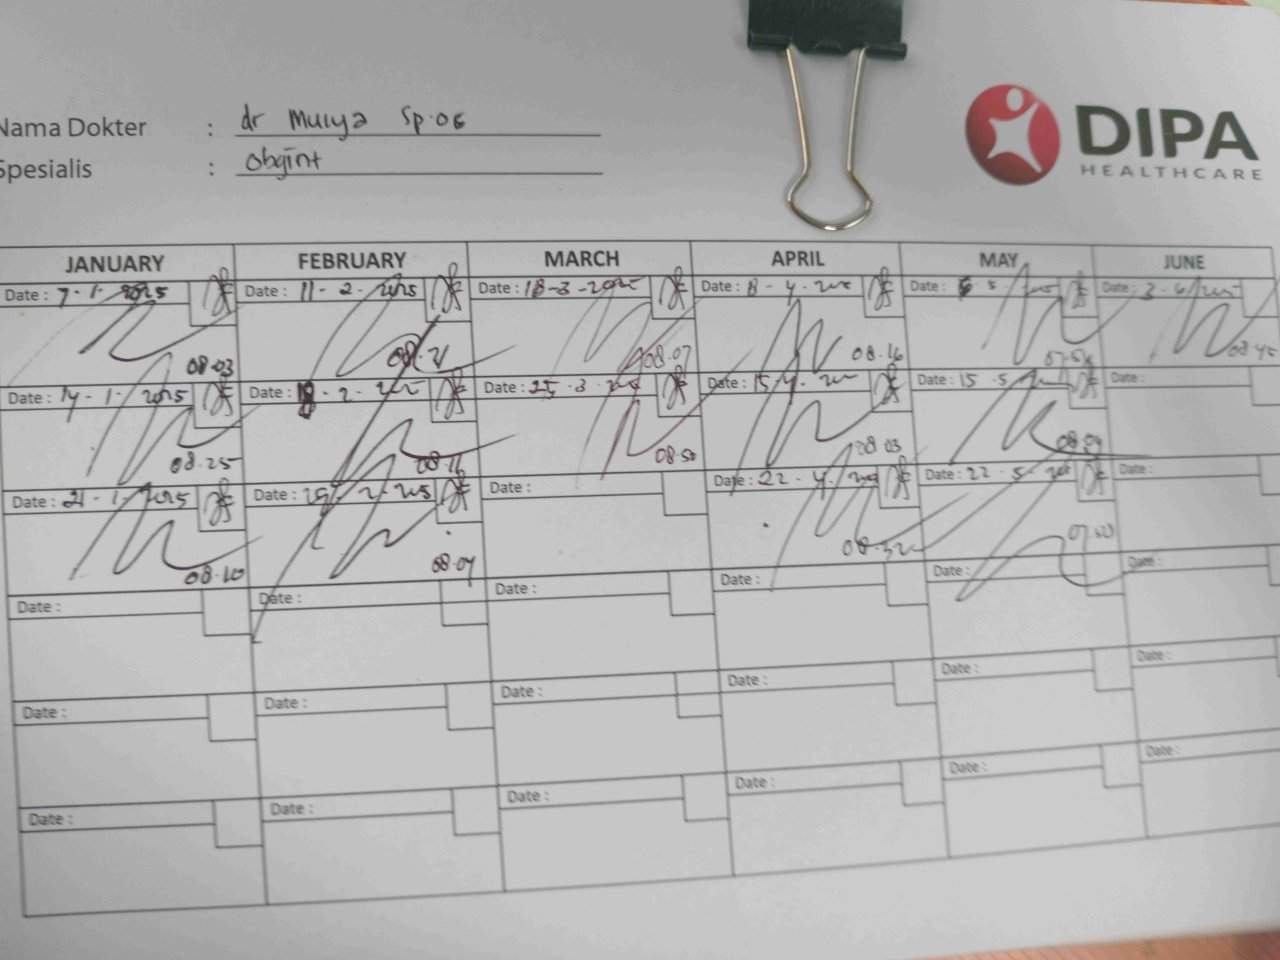 Nama Dokter : dr Mulya Sp.OG
Spesialis : Obgint
DIPA
HEALTHCARE
JANUARY FEBRUARY MARCH APRIL MAY JUNE
Date : 7-1-2025 Date : 11-2-2025 Date : 18-3-2025 Date : 8-4-2025 Date : 5 Date : 3-6-2025
08.03 08.21 08.07 08.16 08.45
Date : 14-1-2025 Date : -2-2025 Date : 25-3-2025 Date : 15-4-2025 Date : 15-5-2025 Date :
08.25 08.16 08.50 08.03 08.09
Date : 21-1-2025 Date : 25-2-2025 Date : Date : 22-4-2025 Date : 22-5-2025 Date :
08.10 08.04 08.32
Date : Date : Date : Date : Date : Date :
Date : Date : Date : Date : Date : Date :
Date : Date : Date : Date : Date : Date :